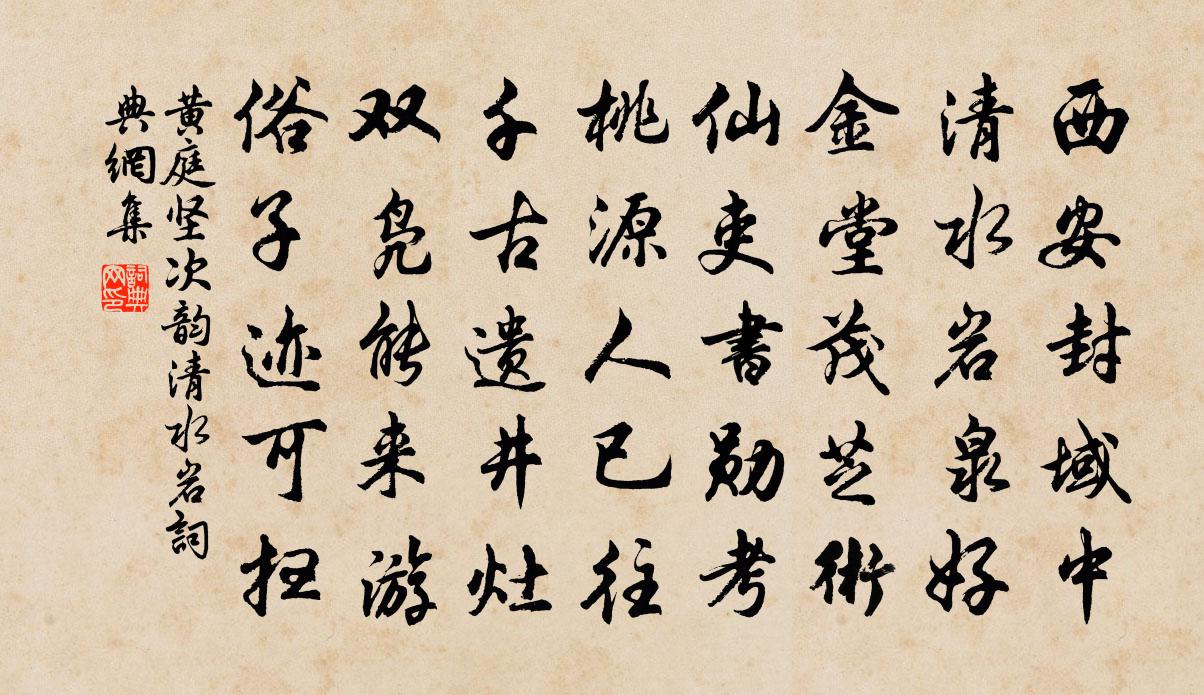 西安封域中
清水岩泉好
金堂茂芝術
仙吏書勋考
桃源人已往
千古遗井灶
双凫能来游
俗子迹可扫
黄庭坚次韵清水岩詞
典網集
詞典网印